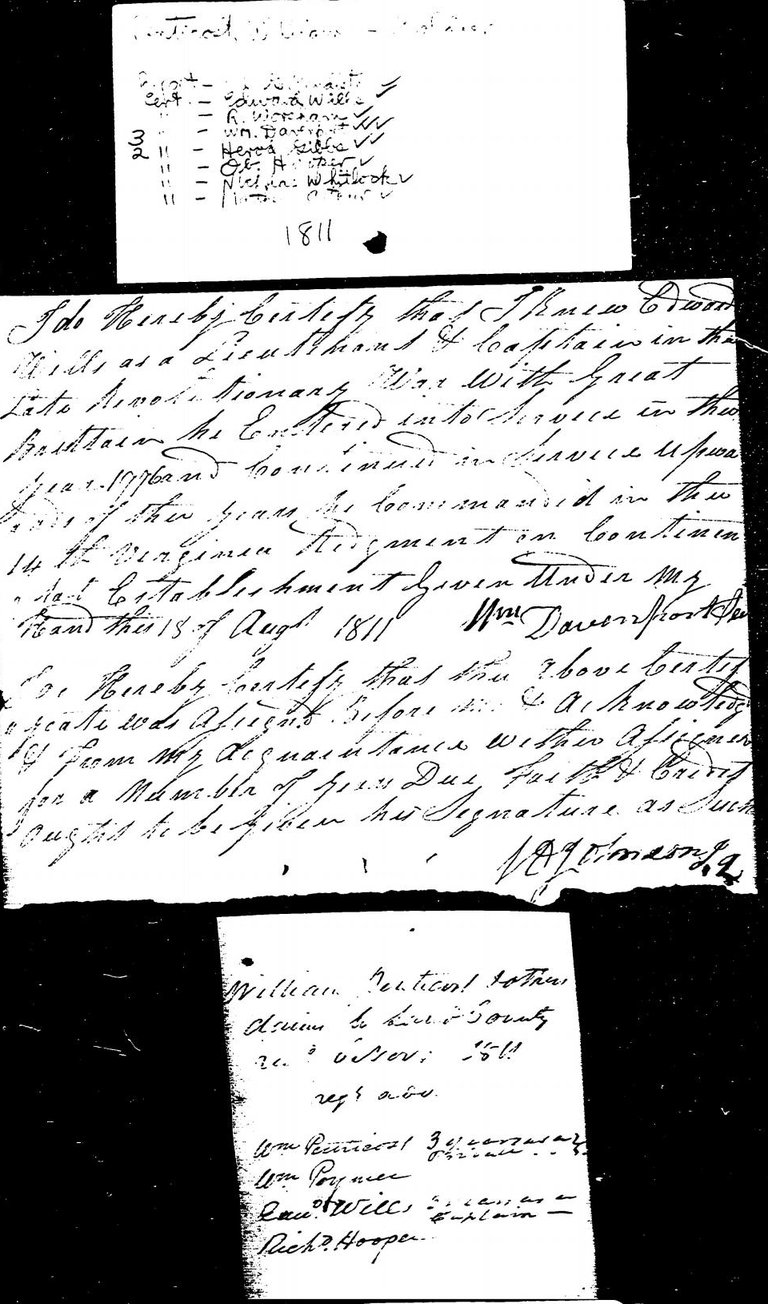 Cert. - Edward Wills ✓
" - R. Workham ✓
" - Wm. Davenport ✓✓✓
3 " - Herod Gibbs ✓✓
2 " - Ob. Hooper ✓
" - Whitlock ✓
" -
1811
I do Hereby Certefy that I Knew Edward
Wills as a Lieutenant & Captain in the
Late Revolutionary War With Great
Brittain he Entered into Service in the
year 1776 and Continued in Service upwa
rads of three years he Commanded in the
14th Verginea Redgment on Continen
tal Establishment Given Under My
Hand this 18 of Augt 1811 Wm Davenport Sen
I do Hereby Certefy that the above Certef
ycate was Asigned Before me & Acknowledg
& from my Acquaintance with Asigner
for a Number of years Due Faith & Credit
Ought to be given his Segnature as Such
J A Johnson J.P
William Penticost & others
claims to bounty
1811
Wm Penticost 3 years as a
private
Wm Poyner
Edwd. Wills 3 years as a
Captain —
Richd. Hooper